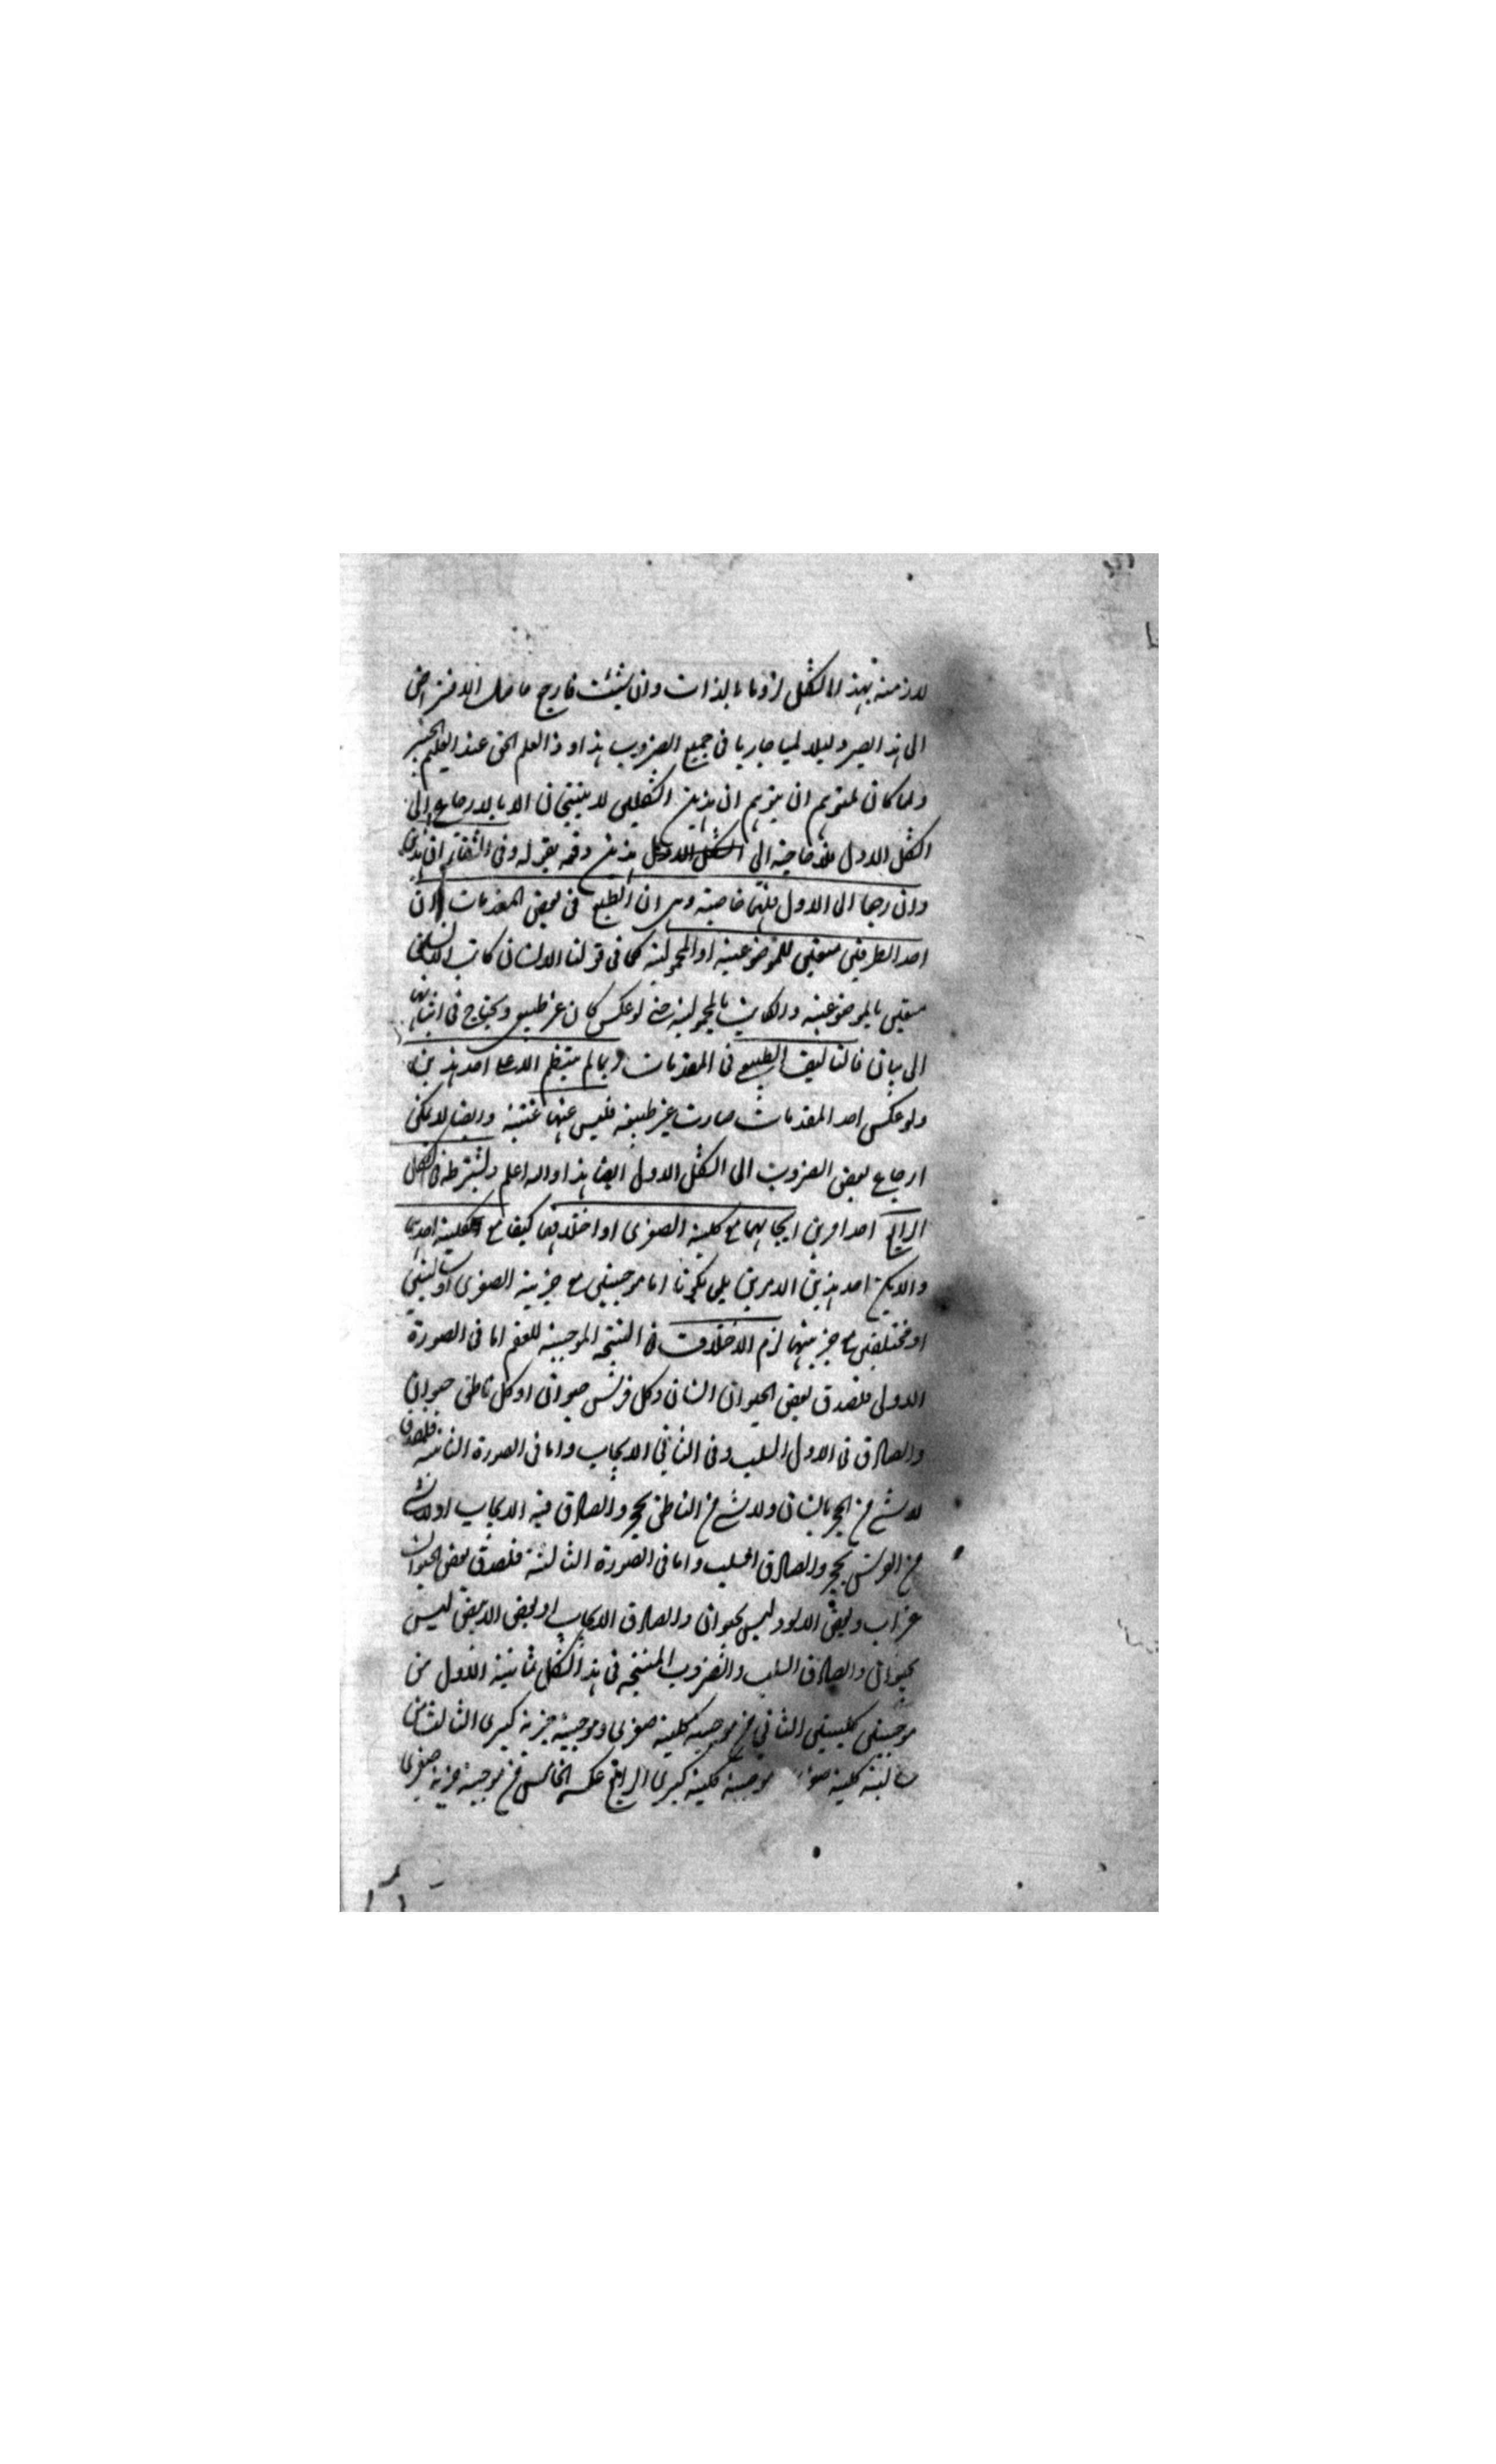 لازمة بهذا الشكل لزوما بالذات وان شئت فارجع ما مثل الافتراض
الى هذا يصير دليلا لميا جاريا فى جميع الضروب هذا وذا العلم الحق عند العليم الخبير
ولما كان لمتوهم ان يتوهم ان هذين الشكلين لا ينتجان الا بالارجاع الى
الشكل الاول فلا حاجة الى هذين دفعه بقوله وفى الشفاء ان هذين
وان رجعا الى الاول فلهما خاصية وهى ان الطبع فى بعض المقدمات ان
احد الطرفين متعين للموضوعية او المحمولية كما فى قولنا الانسان كاتب فالانسان
متعين بالموضوعية والكاتب بالمحمولية حتى لو عكس كان غير طبيعى ويحتاج فى اثباتها
الى بيان فالتاليف الطبيعى فى المقدمات ربما لم ينتظم الا على احد هذين
ولو عكس احد المقدمات صارت غير طبيعية فليس عنهما غنية وايضا لا يمكن
ارجاع بعض الضروب الى الشكل الاول ايضا هذا والله اعلم ويشترط فى الشكل
الرابع احد امرين ايجابهما مع كلية الصغرى او اختلافهما كيفا مع كلية احدهما
والا يكن احد هذين الامرين بل يكونا اما موجبتين مع جزئية الصغرى او سالبتين
او مختلفتين مع جزئيتهما لزم الاختلاف فى النتيجة الموجبة للعقم اما فى الصورة
الاولى فلصدق بعض الحيوان انسان وكل فرس حيوان او كل ناطق حيوان
والصادق فى الاول السلب وفى الثانى الايجاب واما فى الصورة الثانية فلصدق
لا شىء من الحجر بانسان ولا شىء من الناطق بحجر والصادق فيه الايجاب او لا شىء
من الفرس بحجر والصادق السلب واما فى الصورة الثالثة فلصدق بعض الحيوان
غراب وبعض الاسود ليس بحيوان والصادق الايجاب او بعض الابيض ليس
بحيوان والصادق السلب والضروب المنتجة فى هذا الشكل ثمانية الاول من
موجبتين كليتين الثانى من موجبة كلية صغرى وموجبة جزئية كبرى الثالث من
سالبة كلية صغرى موجبة كلية كبرى الرابع عكسه الخامس من موجبة جزئية صغرى